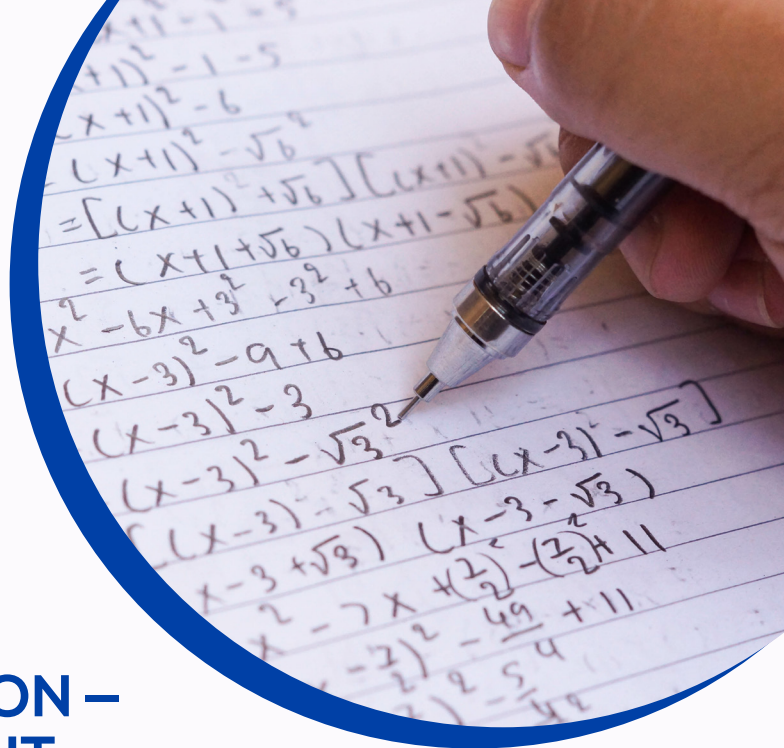 x+1 - 1 - 5
+1)² - 1 - 5
(x+1)² - 6
(x+1)² - √6²
=[(x+1) +√6][(x+1) - √6
=(x+1+√6)(x+1-√6)
x² - 6x + 3² - 3² + 6
(x-3)² - 9 + 6
(x-3)² - 3
(x-3)² - √3²
[(x-3) - √3] [(x-3) - √3]
x-3+√3) (x-3-√3)
x² - 7x + (7/2)² - (7/2)² + 11
- 7/2)² - 49/4 + 11
)² - 5/4
ON –